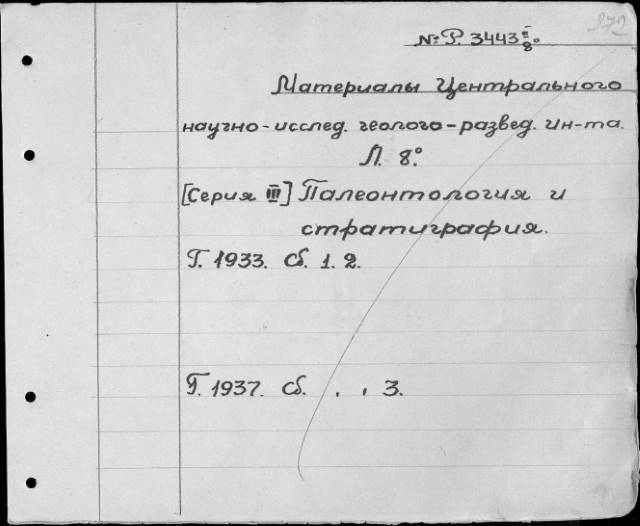 272
№ Р. 3443 III/8°
Материалы Центрального
научно-исслед. геолого-развед. ин-та.
Л. 8°
[Серия III] Палеонтология и
стратиграфия.
Г. 1933. Сб. 1. 2.
Г. 1937. Сб. , , 3.